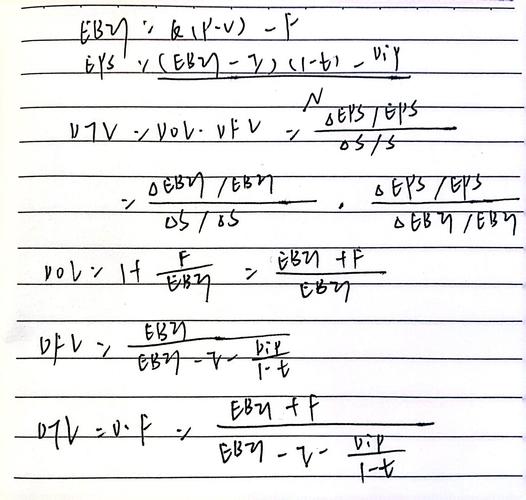 EBIT = Q(P-V) - F
EPS = (EBIT - I)(1-t) - Dip / N
DTL = DOL · DFL = ΔEPS/EPS / ΔS/S
= ΔEBIT/EBIT / ΔS/ΔS · ΔEPS/EPS / ΔEBIT/EBIT
DOL = 1+ F/EBIT = EBIT+F / EBIT
DFL = EBIT / EBIT - I - Dip/1-t
DTL = D·F = EBIT+F / EBIT - I - Dip/1-t